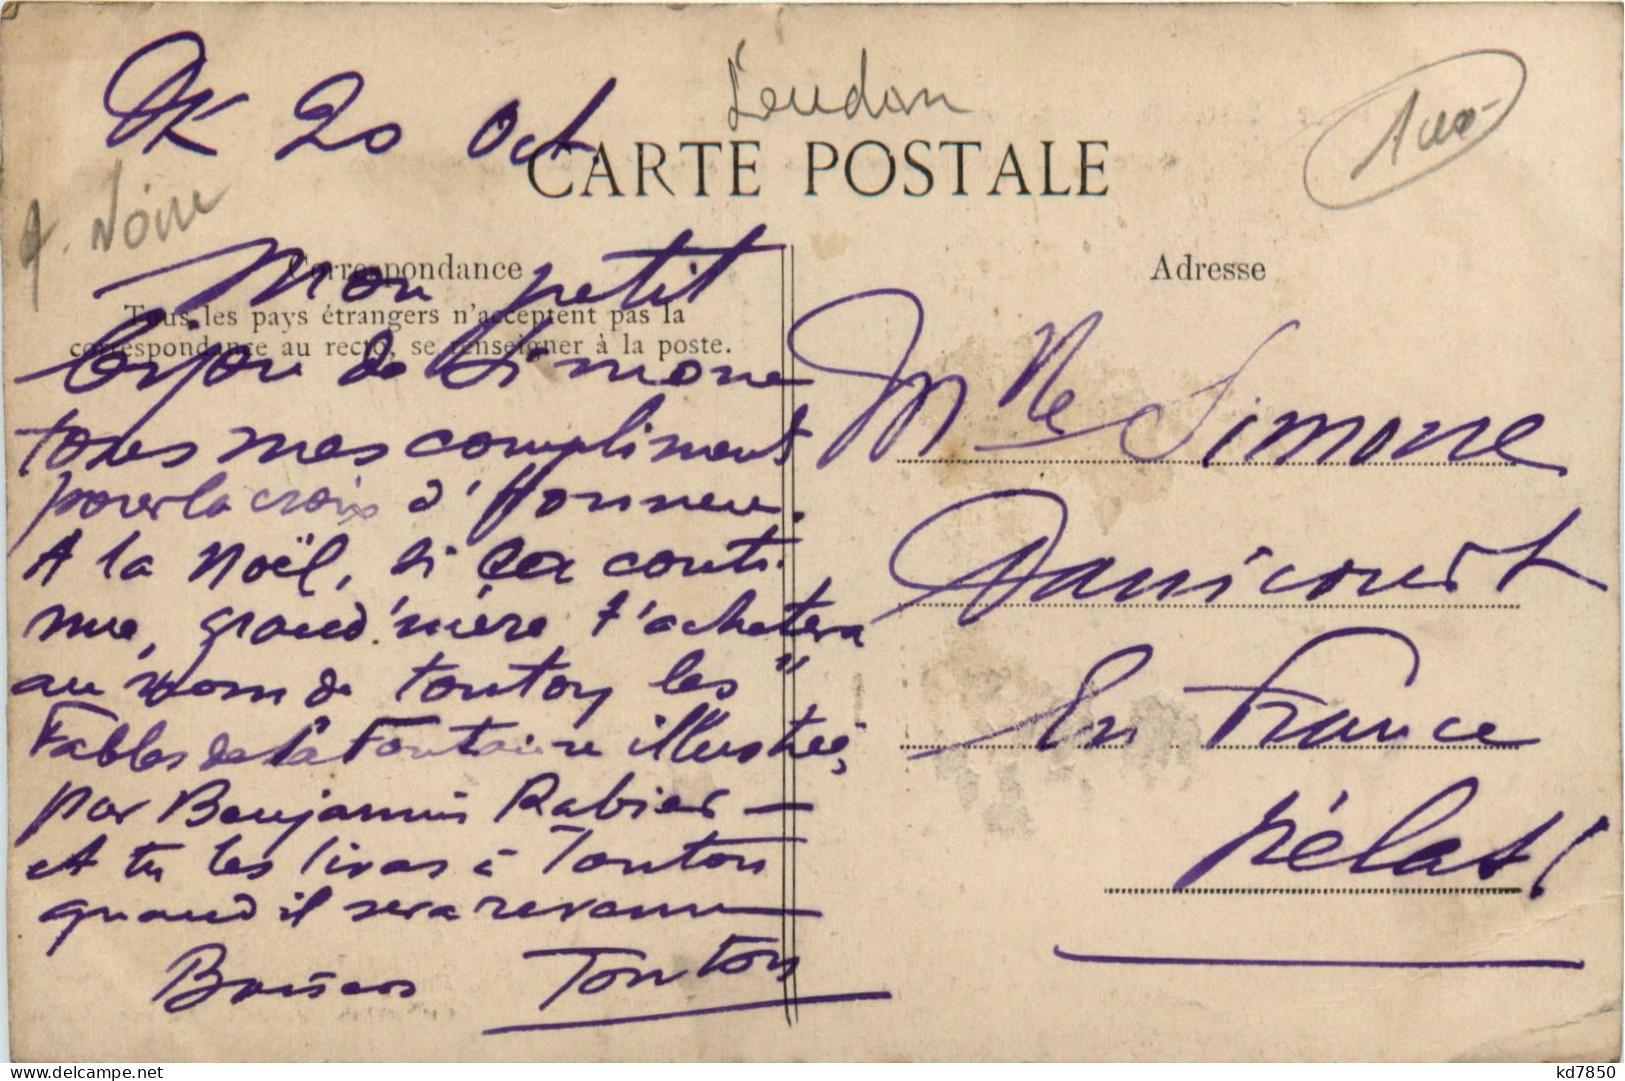 DK 20 Oct.
Loudon
CARTE POSTALE
A. Noire
Correspondance
Tous les pays étrangers n'acceptent pas la
correspondance au recto, se renseigner à la poste.
Mon petit
bijou de Simone
tous mes compliments
pour la croix d'Honneur.
A la Noël, si ça conti-
nue, grand'mère t'achetera
au nom de tonton les "
Fables de La Fontaine illustrées
par Benjamin Rabier —
et tu les liras à Tonton
quand il sera revenu
Baisers Tonton
Adresse
Mlle Simone
Danicourt
En France
Pélast
kd7850